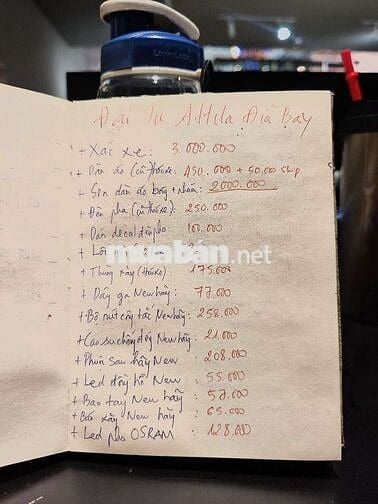 Đại Tu Attila Đĩa Bay
+ Xác xe: 3.000.000
+ Dàn áo (cũ theo xe): 450.000 + 50.000 ship
+ Sơn dàn áo bóng + nhám: 2000.000
+ Đèn pha (cũ theo xe): 250.000
+ Dán decal đèn pha: 100.000
muaban.net
+ Thùng xăng (theo xe): 175.000
+ Dây ga New hãng: 77.000
+ Bộ nút công tắc New hãng: 258.000
+ Cao su chống đứng New hãng: 21.000
+ Phuộc sau hãng New 208.000
+ Led đồng hồ New : 55.000
+ Bao tay New hãng : 57.000
+ Báo xăng New hãng : 65.000
+ Led pha OSRAM : 128.000